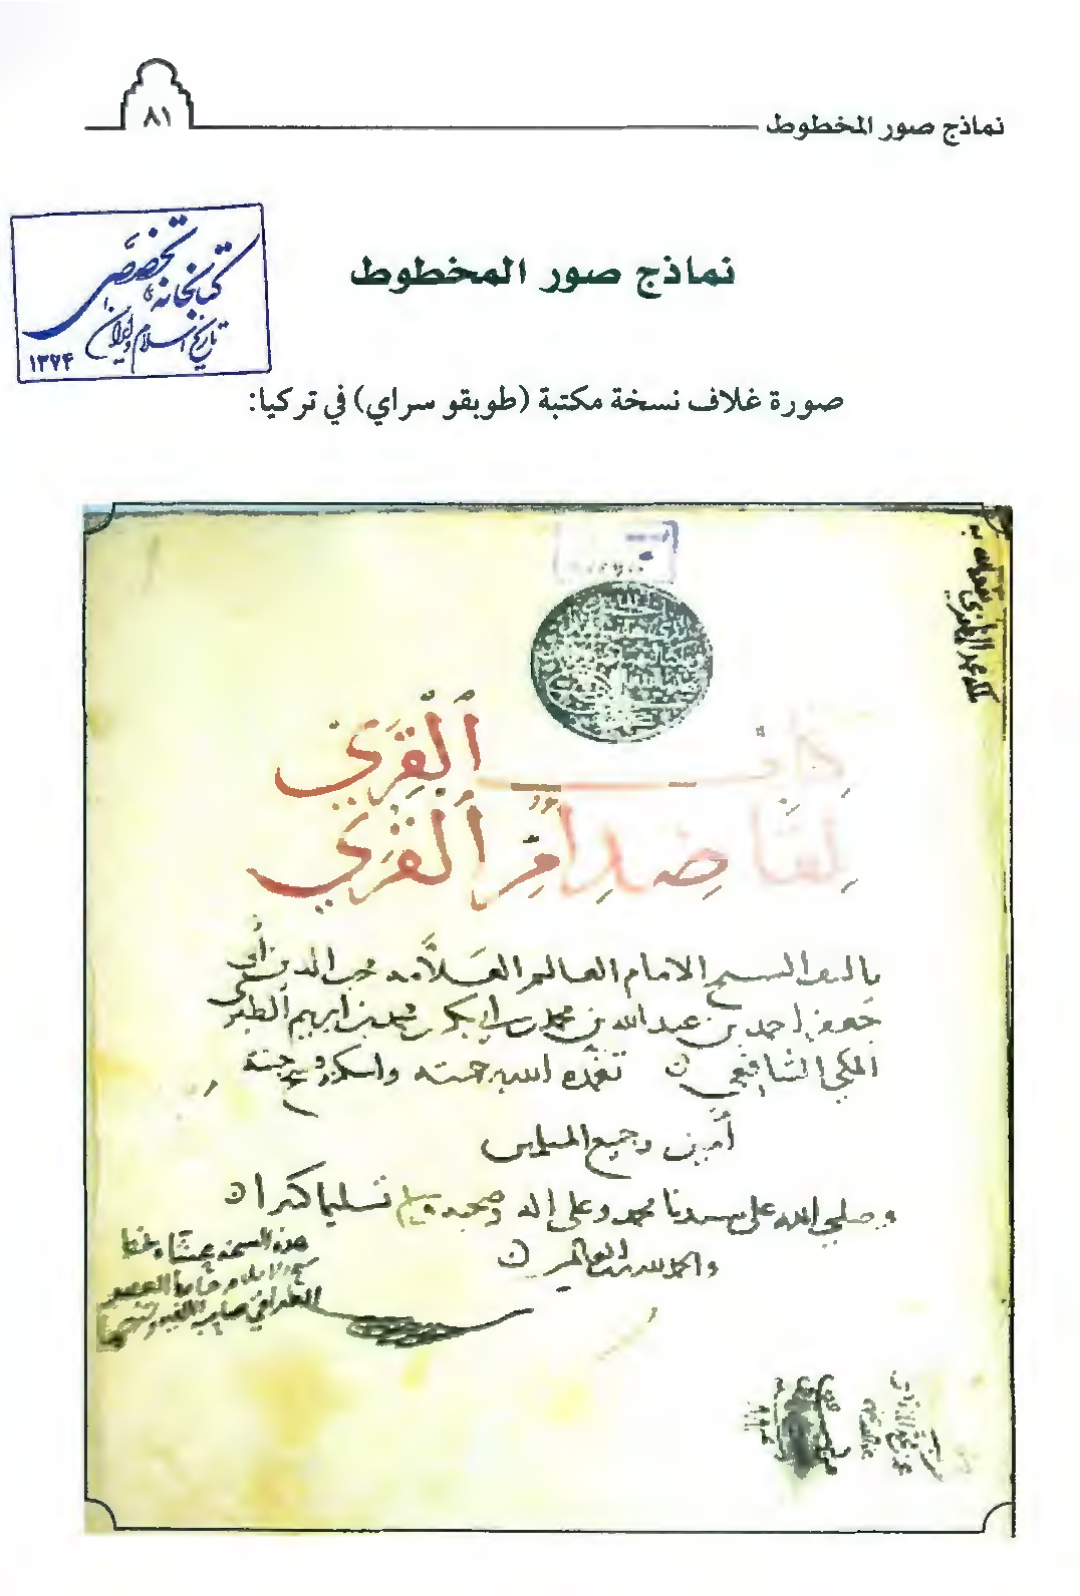 نماذج صور المخطوط
٨١
كتابخانه تخصصى
تاريخ اسلام و ايران
١٣٧٤
نماذج صور المخطوط
صورة غلاف نسخة مكتبة (طوبقو سراي) في تركيا:
كتاب القرى
لقاصد ام القرى
تاليف الشيخ الامام العالم العلامه محب الدين أبى
جعفر احمد بن عبد الله بن محمد بن ابى بكر بن محمد بن ابرهيم الطبرى
المكي الشافعي تغمده الله برحمته واسكنه جنته
أمين وجميع المسلمين
وصلى الله على سيدنا محمد وعلى اله وصحبه وسلم تسليما كثيرا
والحمد لله رب العالمين
هذه النسخه